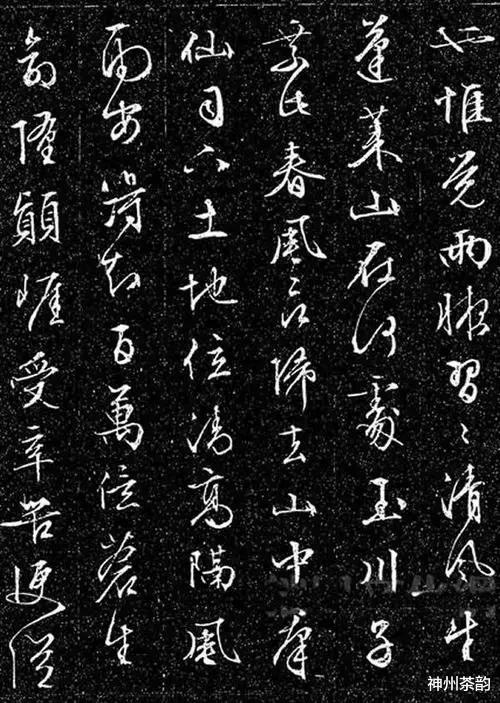 也惟覺兩腋習〻清風生
蓬萊山在何處玉川子
乘此春風欲歸去山中羣
仙司下土地位清高隔風
雨安得知百萬億蒼生
命墮顛崖受辛苦便從
神州茶韵